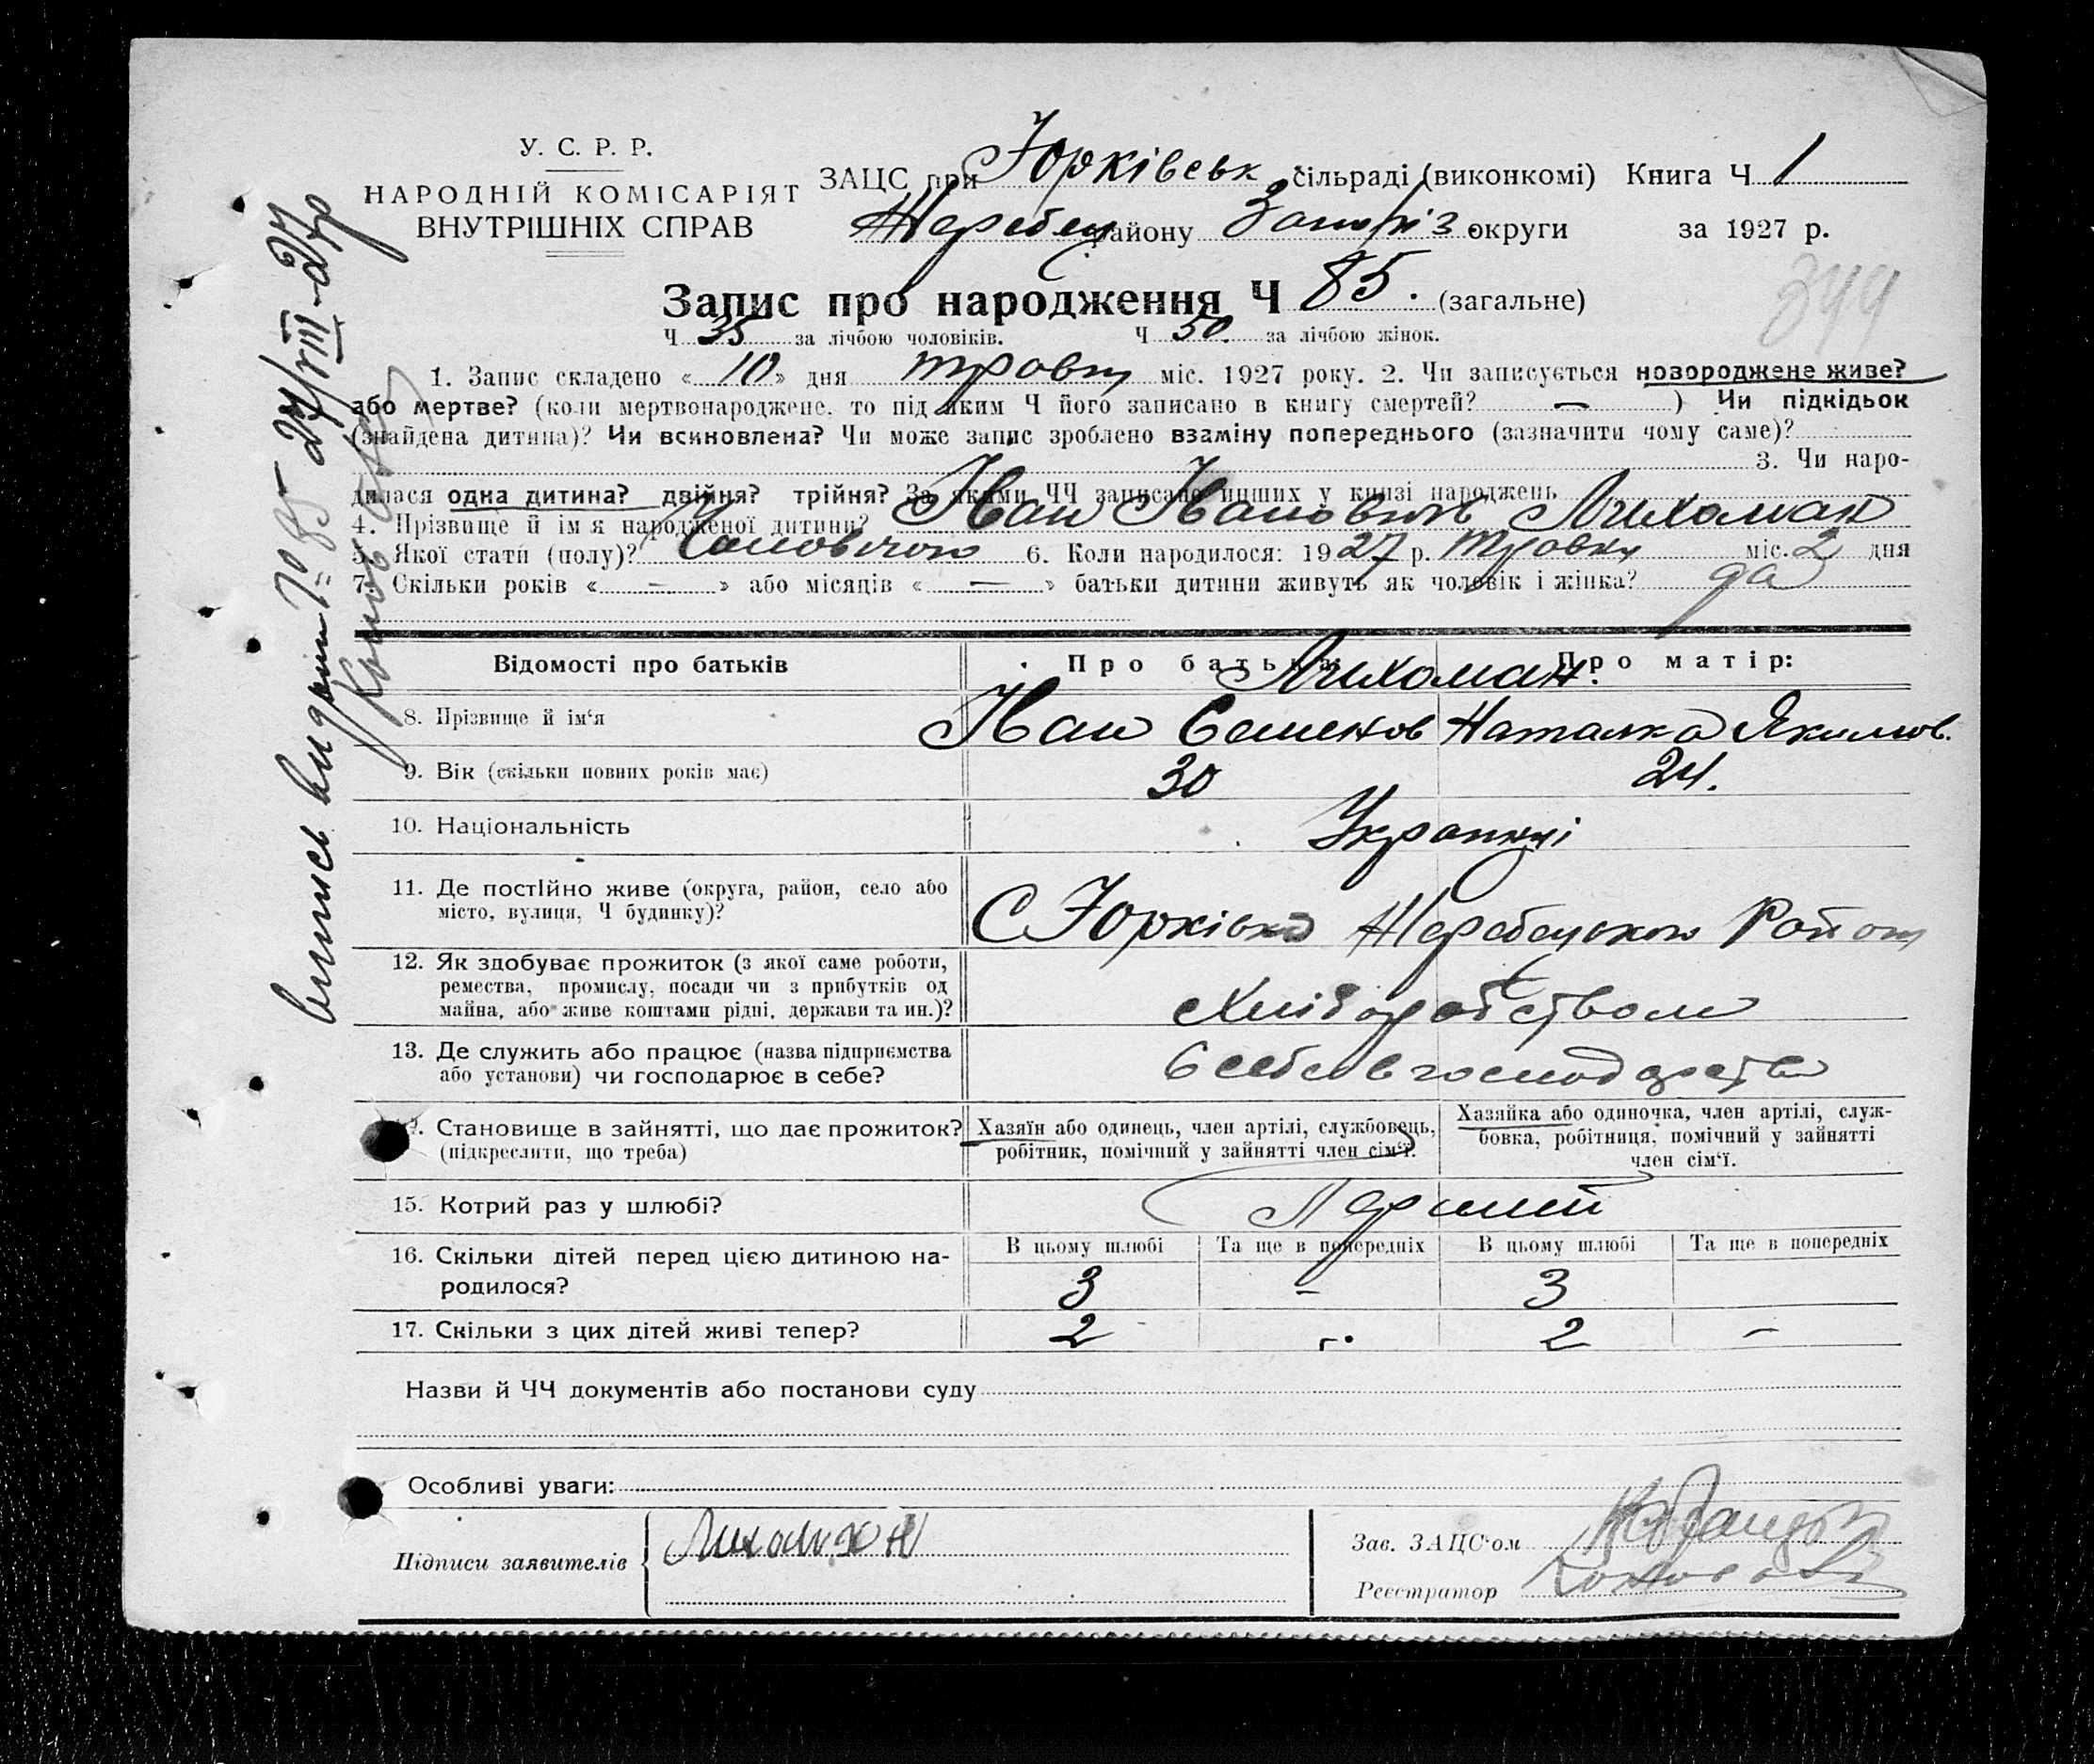 У. С. Р. Р.
НАРОДНІЙ КОМІСАРІЯТ
ВНУТРІШНІХ СПРАВ
ЗАЦС при Юрківськ сільраді (виконкомі) Книга Ч 1
Жеребец району Запоріз округи за 1927 р.
344
Запис про народження Ч 85. (загальне)
Ч 35 за лічбою чоловіків. Ч 50. за лічбою жінок.
1. Запис складено « 10 » дня травня міс. 1927 року. 2. Чи записується новороджене живе?
або мертве? (коли мертвонароджене, то під яким Ч його записано в книгу смертей? — ) Чи підкідьок
(знайдена дитина)? Чи всиновлена? Чи може запис зроблено взаміну попереднього (зазначити чому саме)?
3. Чи наро-
дилася одна дитина? двійня? трійня? За якими ЧЧ записано инших у книзі народжень
4. Прізвище й ім'я народженої дитини? Іван Іванович Лихоман
5. Якої статі (полу)? Чоловічого 6. Коли народилося: 1927 р. травня міс. 2 дня
7. Скільки років « — » або місяців « — » батьки дитини живуть як чоловік і жінка? да
Відомості про батьків
Про батька: Про матір:
Лихоман.
8. Прізвище й ім'я Іван Семенов Наталка Якимов.
9. Вік (скільки повних років має) 30 24.
10. Національність Українці
11. Де постійно живе (округа, район, село або
місто, вулиця, Ч будинку)?
С Юрківка Жеребецького Району
12. Як здобуває прожиток (з якої саме роботи,
ремества, промислу, посади чи з прибутків од
майна, або живе коштами рідні, держави та ин.)?
Хліборобством
13. Де служить або працює (назва підприємства
або установи) чи господарює в себе?
В себе в господарстві
14. Становище в зайнятті, що дає прожиток?
(підкреслити, що треба)
Хазяїн або одинець, член артілі, службовець,
робітник, помічний у зайнятті член сім'ї.
Хазяйка або одиночка, член артілі, служ-
бовка, робітниця, помічний у зайнятті
член сім'ї.
15. Котрий раз у шлюбі? Перший
16. Скільки дітей перед цією дитиною на-
родилося?
В цьому шлюбі Та ще в попередніх В цьому шлюбі Та ще в попередніх
3 – 3
17. Скільки з цих дітей живі тепер? 2 2 –
Назви й ЧЧ документів або постанови суду
Особливі уваги:
Підписи заявителів Лихоман
Зав. ЗАЦС'ом
Реєстратор
випись видана № 85 27/VIII-27р